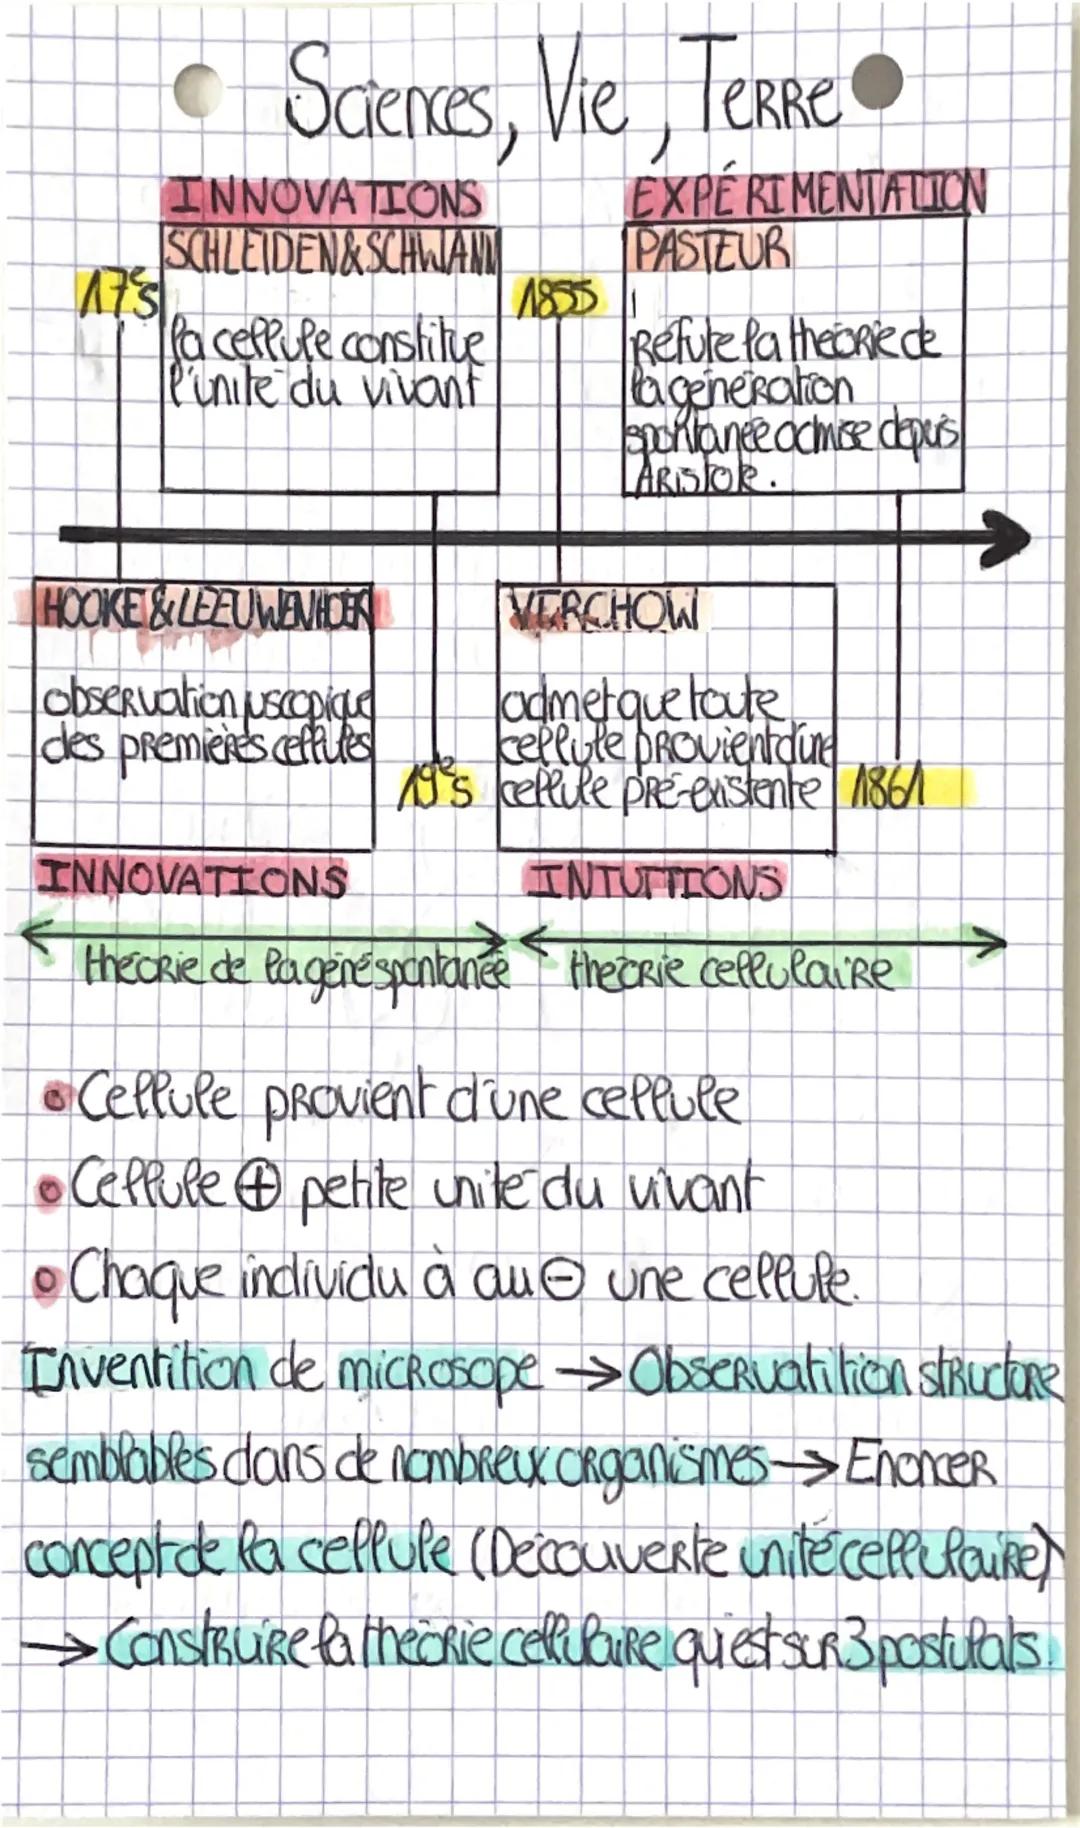 Sciences, Vie, Terre
INNOVATIONS
SCHLEIDEN & SCHWANN
17es
la cellule constitue
l'unité du vivant
1855
EXPÉRIMENTATION
PASTEUR
Réfute la théorie de
la génération
spontanée admise depuis
ARISTOTE.
HOOKE & LEEUWENHOEK
observation µscopique
des premières cellules
19es
VERCHOW
admet que toute
cellule provient d'une
cellule pré-existente
1861
INNOVATIONS
INTUITIONS
théorie de la géné spontanée
théorie cellulaire
Cellule provient d'une cellule
Cellule ⊕ petite unité du vivant
Chaque individu à au ⊖ une cellule.
Inventition de microsope → Observatition structure
semblables dans de nombreux organismes → Enoncer
concept de la cellule (Découverte unité cellulaire)
→ Construire la théorie cellulaire qui est sur 3 postulats.